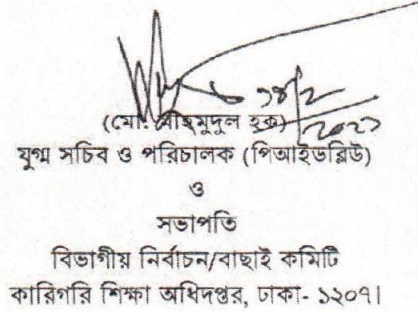 ১৪/২
২০২১
(মো: হক)
যুগ্ম সচিব ও পরিচালক (পিআইডব্লিউ)
ও
সভাপতি
বিভাগীয় নির্বাচন/বাছাই কমিটি
কারিগরি শিক্ষা অধিদপ্তর, ঢাকা- ১২০৭।